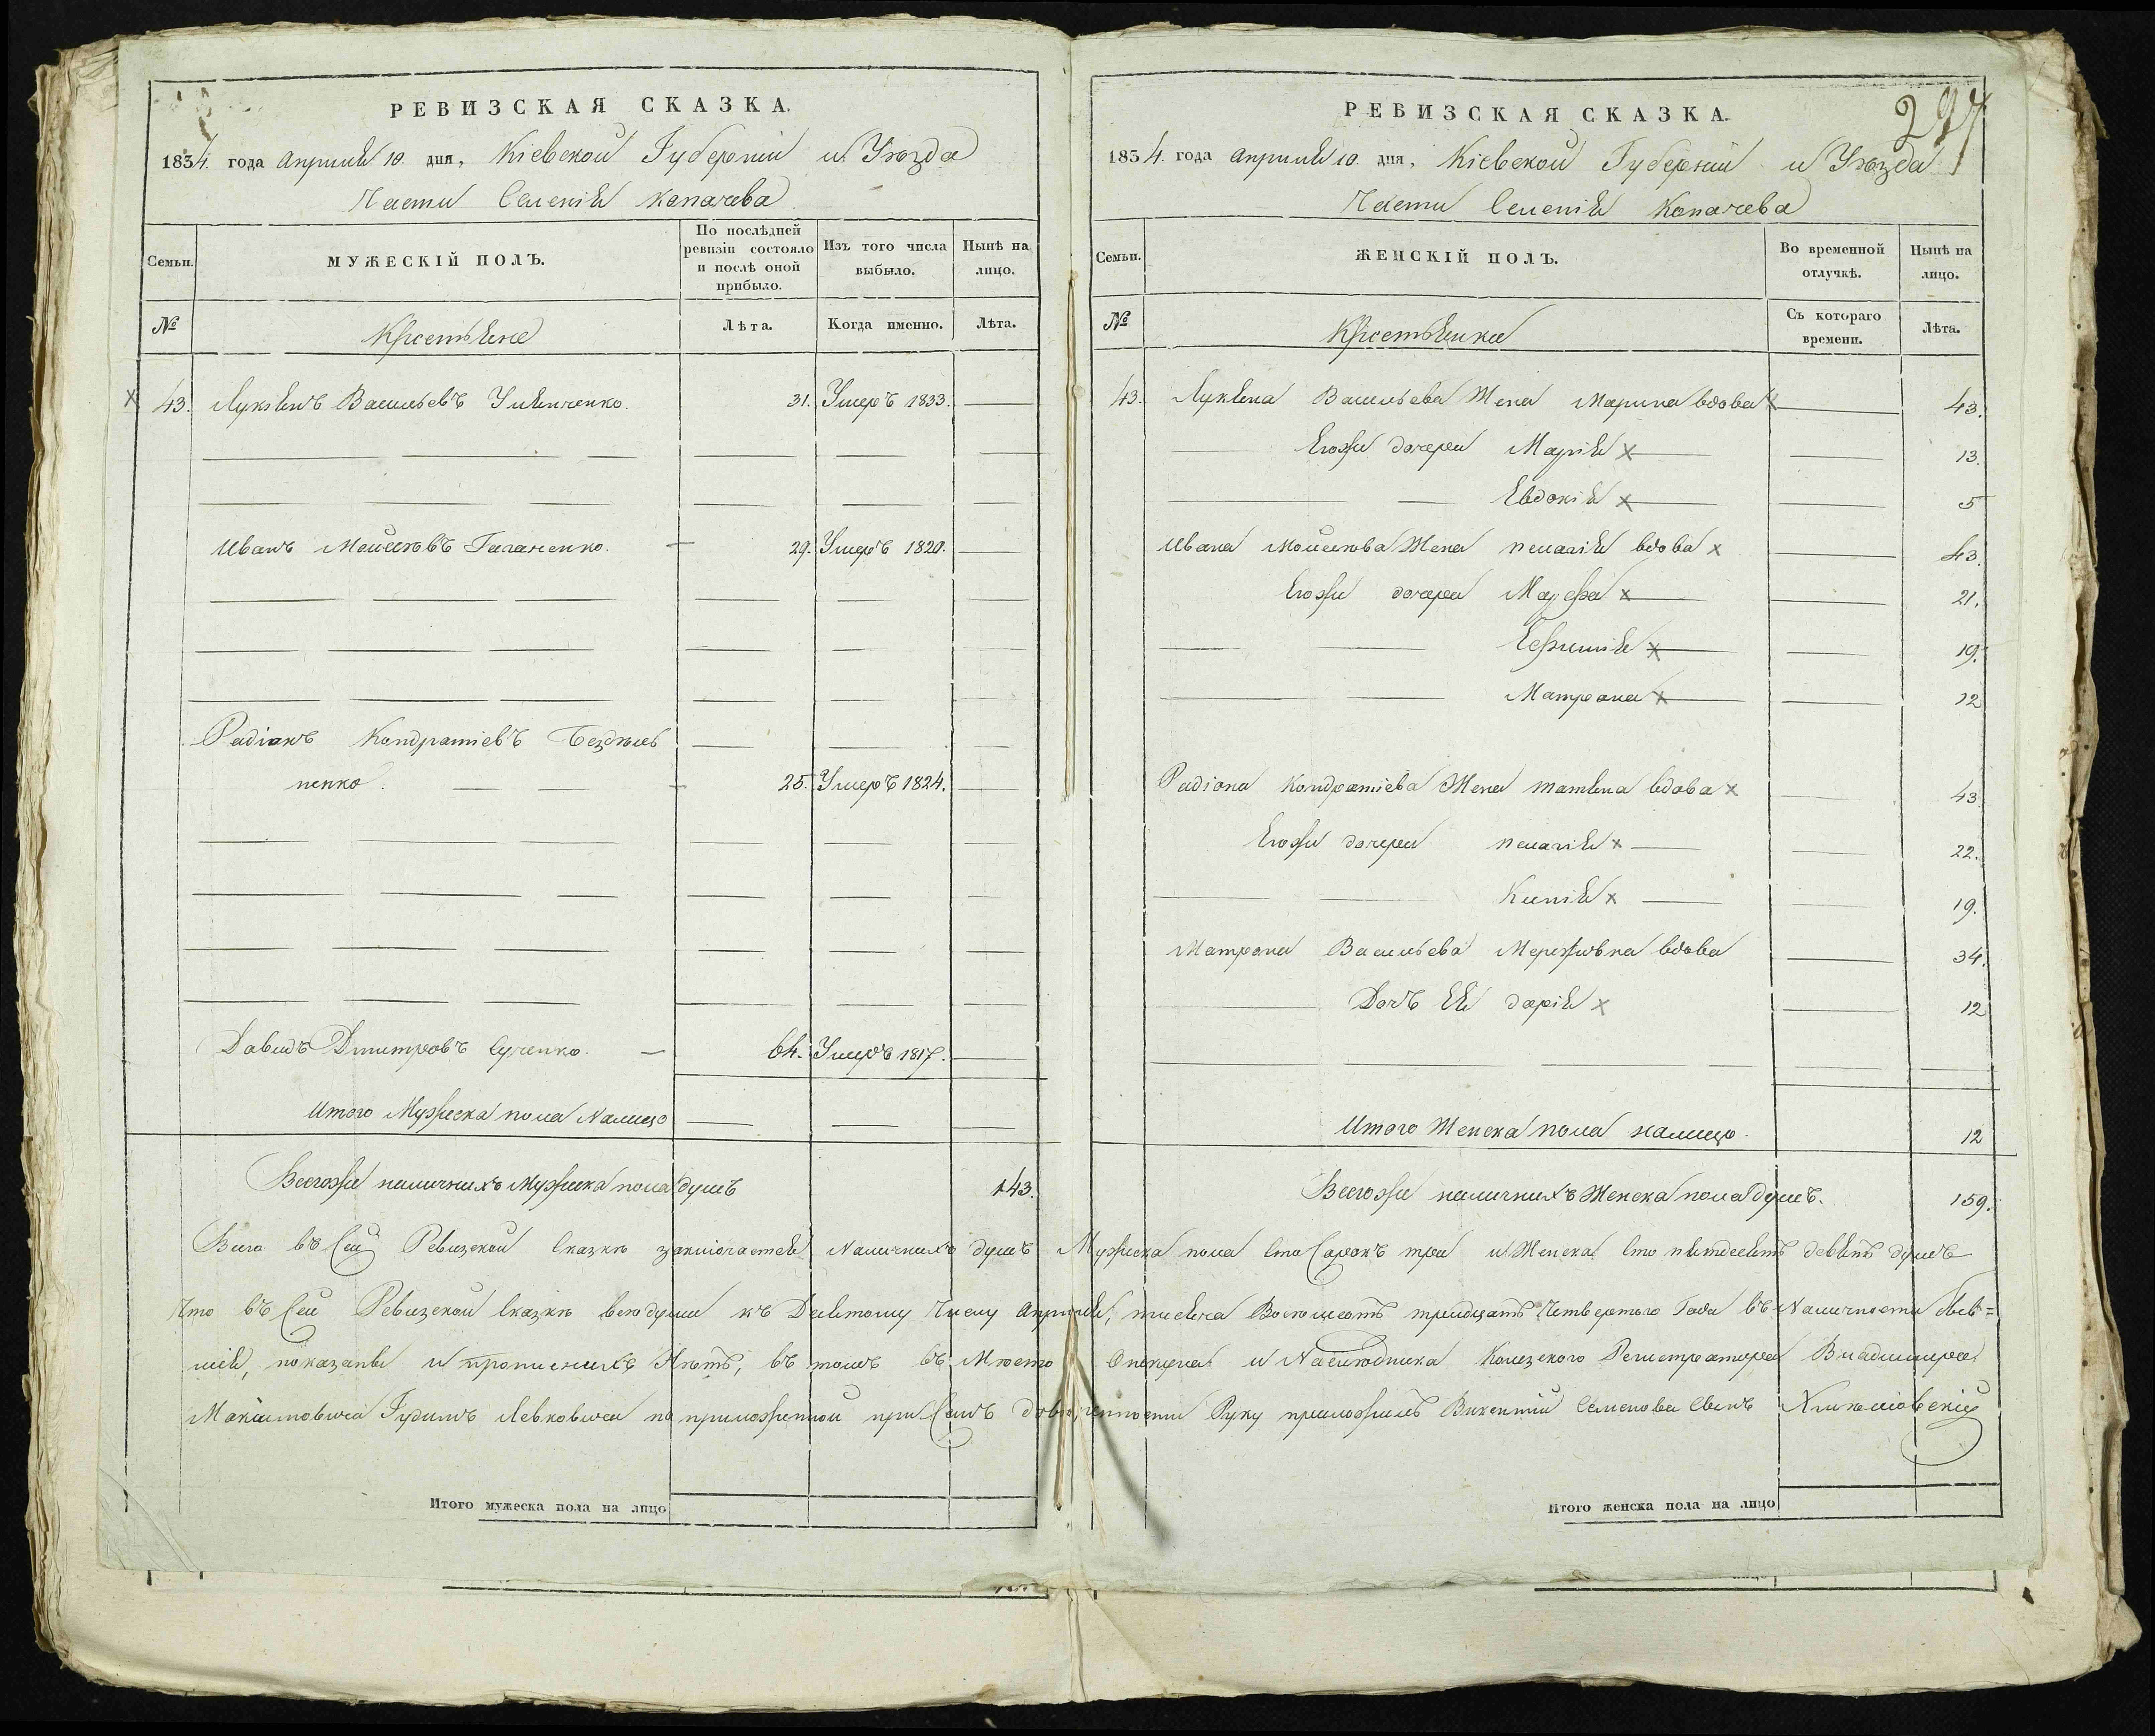 РЕВИЗСКАЯ СКАЗКА.
1834. года Априля 10. дня, Кіевской Губерніи и Уѣзда
Части Селенія Копачева
Семьи.
МУЖЕСКІЙ ПОЛЪ.
По послѣдней ревизіи состояло и послѣ оной прибыло.
Изъ того числа выбыло.
Нынѣ на лицо.
№
Крестьяне
Лѣта.
Когда именно.
Лѣта.
43. Лукьянъ Васильевъ 31. Умеръ 1833.
Иванъ Мойсѣевъ 29. Умеръ 1820.
Радіонъ Кондратіевъ Бездѣль
ненко. 25. Умеръ 1824.
Давидъ Дмитровъ Сученко. 64. Умеръ 1817.
Итого Мужеска пола Налицо
Всегоже наличнихъ Мужеска пола душъ 143.
РЕВИЗСКАЯ СКАЗКА.
297
1834. года Априля 10. дня, Кіевской Губерніи и Уѣзда
Части Селенія Копачева
Семьи.
ЖЕНСКІЙ ПОЛЪ.
Во временной отлучкѣ.
Нынѣ на лицо.
№
Крестьянки
Съ котораго времени.
Лѣта.
43. Лукьяна Васильева Жена Марина вдова 43.
Егоже дочери Марія 13.
Евдокія 5
Ивана Мойсѣева Жена Пелагія вдова 43.
Егоже дочери Марфа 21.
Ефимія 19.
Матрона 12
Радіона Кондратіева Жена татяна вдова 43
Егоже дочери Пелагія 22.
Ксенія 19.
Матрона Васильева вдова 34.
Дочъ ЕЯ дарія 12
Итого Женска пола налицо. 12
Всегоже наличнихъ Женска пола душъ. 159.
Всего въ Сей Ревизской Сказкѣ заключается Наличнихъ душъ Мужеска пола Сто Сорокъ три и Женска Сто пятдесятъ девять душъ
Что въ Сей Ревизской Сказкѣ всѣ души къ Десятому Числу Апреля, тисяча Восемсотъ тридцать Четвертого Года въ Наличности бив=
шія, показаны и прописнихъ Нѣтъ, въ томъ въ Мѣсто Опекуна и Наслѣдника Колезского Регистратора Владимира
Максимовича Гудимъ Левковича по приложенной при Семъ довѣренности Руку приложилъ Викентій Семенова Сынъ
Итого мужеска пола на лицо
Итого женска пола на лицо